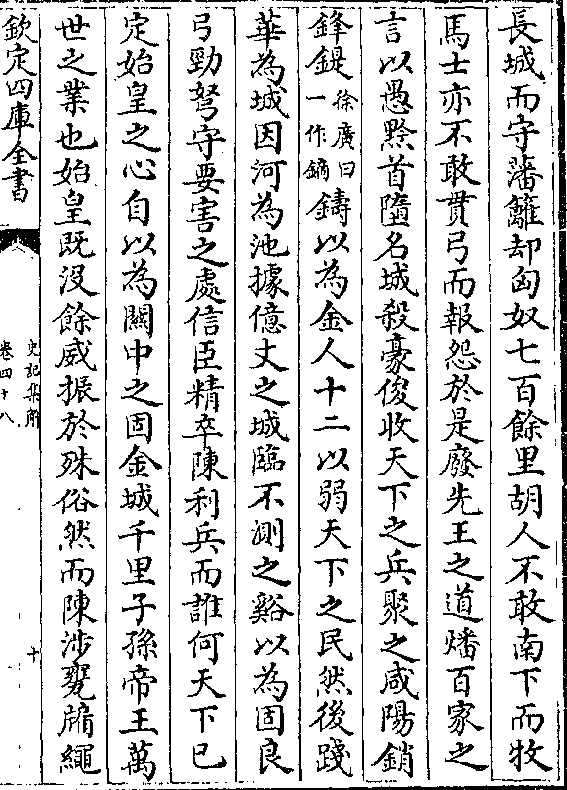 長城而守藩籬却匈奴七百餘里胡人不敢南下而牧
馬士亦不敢貫弓而報怨於是廢先王之道燔百家之
言以愚黔首墮名城殺豪俊收天下之兵聚之咸陽銷
鋒鍉徐廣曰一作鏑鑄以為金人十二以弱天下之民然後踐
華為城因河為池據億丈之城臨不測之谿以為固良
弓勁弩守要害之處信臣精卒陳利兵而誰何天下已
定始皇之心自以為關中之固金城千里子孫帝王萬
世之業也始皇既没餘威振於殊俗然而陳涉甕牖繩
欽定四庫全書
史記集解
卷四十八
十